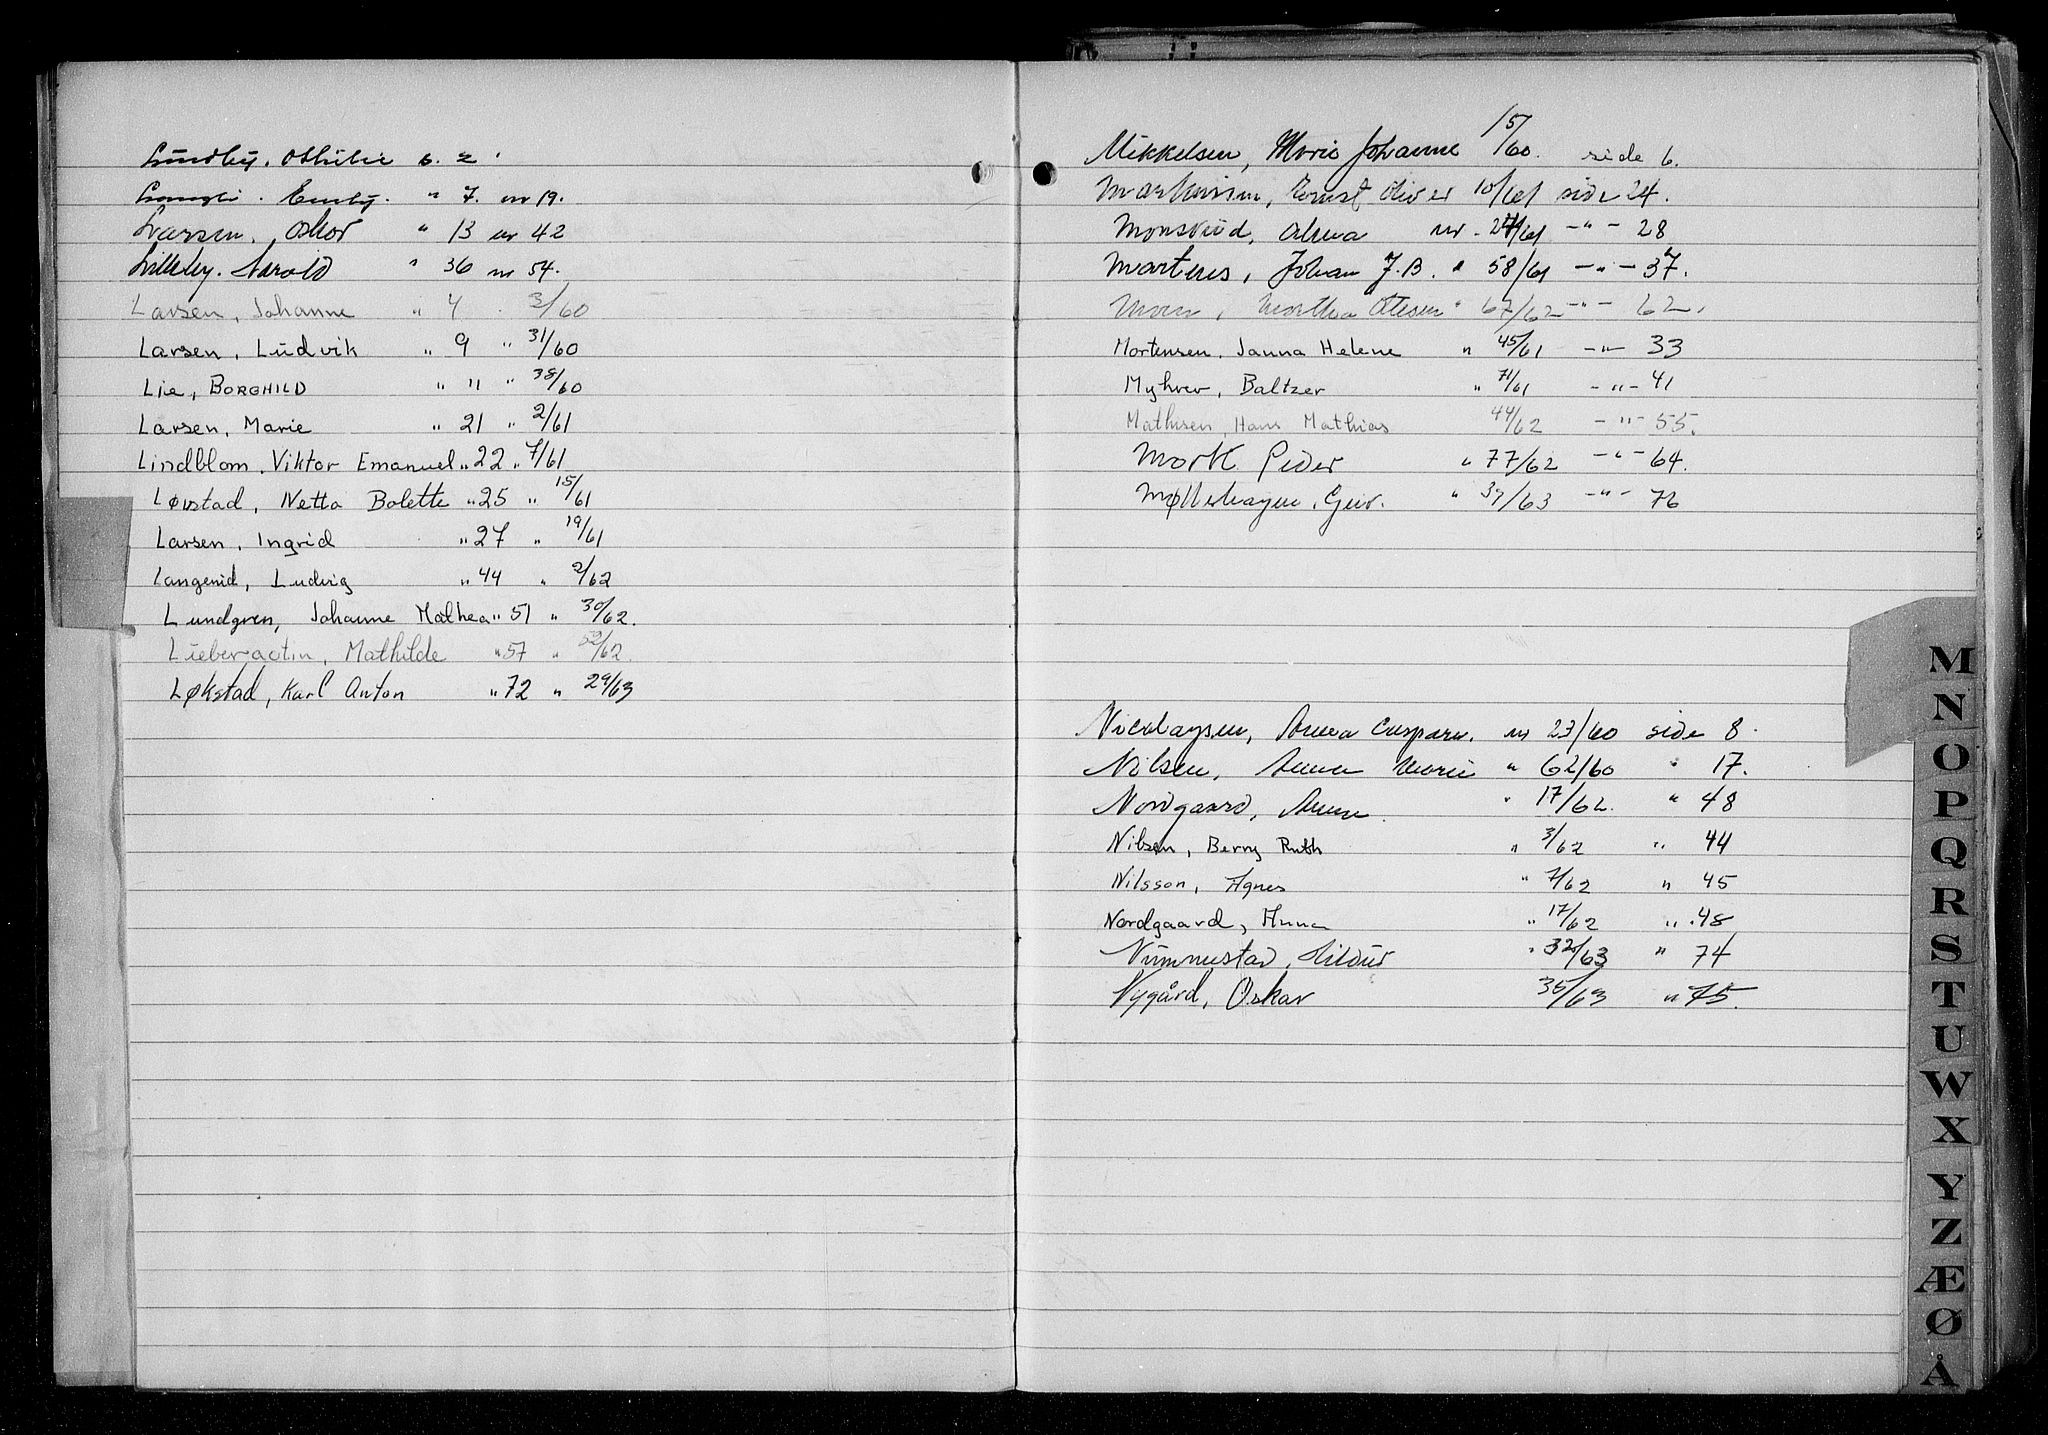 Lundby, Othilie s. 2.
Emily. " 7. nr 19.
Larsen, Oskar " 13 nr 42
Lilleby. Harald " 36 nr 54.
Larsen, Johanne " 4 " 3/60
Larsen, Ludvik " 9 " 31/60
Lie, BORGHILD " 11 " 38/60
Larsen, Marie " 21 " 2/61
Lindblom, Viktor Emanuel " 22 " 7/61
Løvstad, Netta Bolette " 25 " 15/61
Larsen, Ingrid " 27 " 19/61
Langerud, Ludvig " 44 " 2/62
Lundgren, Johanne Mathea " 51 " 30/62.
Mathilde " 57 " 52/62.
Løkstad, Karl Anton " 72 " 29/63
Mikkelsen, Marie Johanne 15/60. side 6.
Markussen, Ernst Oliver 10/61 side 24.
Monsrud, nr. 24/61 - " - 28
Martens, Johan J. B. " 58/61 - " - 37.
Moen, Martha Ottesen " 67/62 - " - 62.
Mortensen, Janna Helene " 45/61 - " - 33
Myhrer, Baltzer " 71/61 - " - 41
Mathisen, Hans Mathias 44/62 - " - 55.
Mork Peder " 77/62 - " - 64.
Møllerhagen, " 39/63 - " - 76
Nicolaysen, Anna nr 23/60 side 8.
Nilsen, Anna Marie " 62/60 " 17.
Nordgaard, Anna " 17/62. " 48
Nilsen, Berny Ruth " 3/62 " 44
Nilsson, Agnes " 7/62 " 45
Nordgaard, Anna " 17/62 " 48
Nummestad, Hildur " 32/63 " 74
Nygård, Oskar 35/63 " 75.
M
N
O
P
Q
R
S
T
U
W
X
Y
Z
Æ
Ø
Å